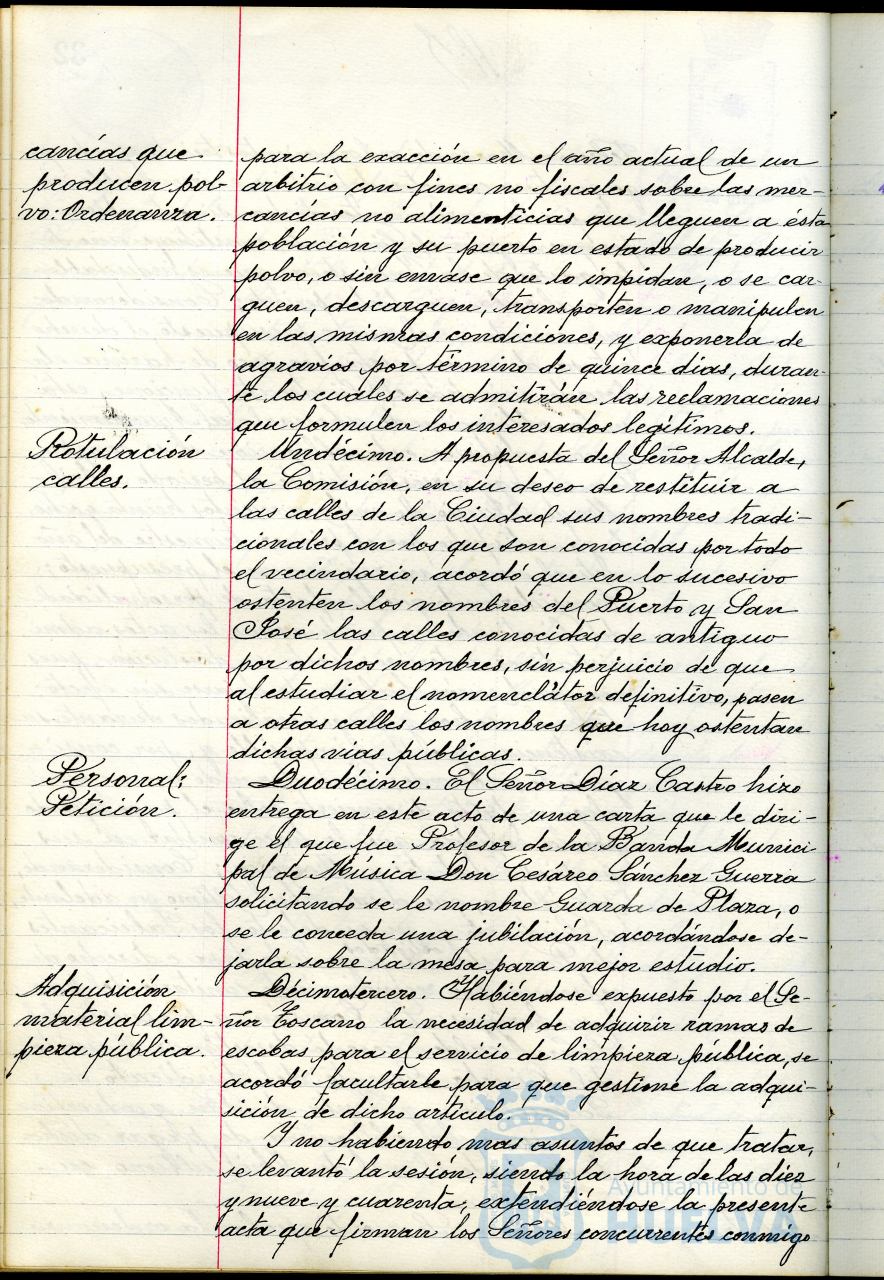 cancías que
producen pol-
vo: Ordenanza.
para la exacción en el año actual de un
arbitrio con fines no fiscales sobre las mer-
cancías no alimenticias que lleguen a ésta
población y su puerto en estado de producir
polvo, o sin envase que lo impidan, o se car-
guen, descarguen, transporten o manipulen
en las mismas condiciones, y exponerla de
agravios por término de quince días, duran-
te los cuales se admitirán las reclamaciones
que formulen los interesados legítimos.
Rotulación
calles.
Undécimo. A propuesta del Señor Alcalde,
la Comisión, en su deseo de restituir a
las calles de la Ciudad sus nombres tradi-
cionales con los que son conocidas por todo
el vecindario, acordó que en lo sucesivo
ostenten los nombres del Puerto y San
José las calles conocidas de antiguo
por dichos nombres, sin perjuicio de que
al estudiar el nomenclátor definitivo, pasen
a otras calles los nombres que hoy ostentan
dichas vias públicas.
Personal:
Petición.
Duodécimo. El Señor Díaz Castro hizo
entrega en este acto de una carta que le diri-
ge el que fue Profesor de la Banda Munici-
pal de Música Don Cesáreo Sánchez Guerra
solicitando se le nombre Guarda de Plaza, o
se le conceda una jubilación, acordándose de-
jarla sobre la mesa para mejor estudio.
Adquisición
material lim-
pieza pública.
Décimotercero. Habiéndose expuesto por el Se-
ñor Toscano la necesidad de adquirir ramas de
escobas para el servicio de limpieza pública, se
acordó facultarle para que gestione la adqui-
sición de dicho artículo.
Y no habiendo mas asuntos de que tratar,
se levantó la sesión, siendo la hora de las diez
y nueve y cuarenta, extendiéndose la presente
acta que firman los Señores concurrentes conmigo
Ayuntamiento de
HUELVA